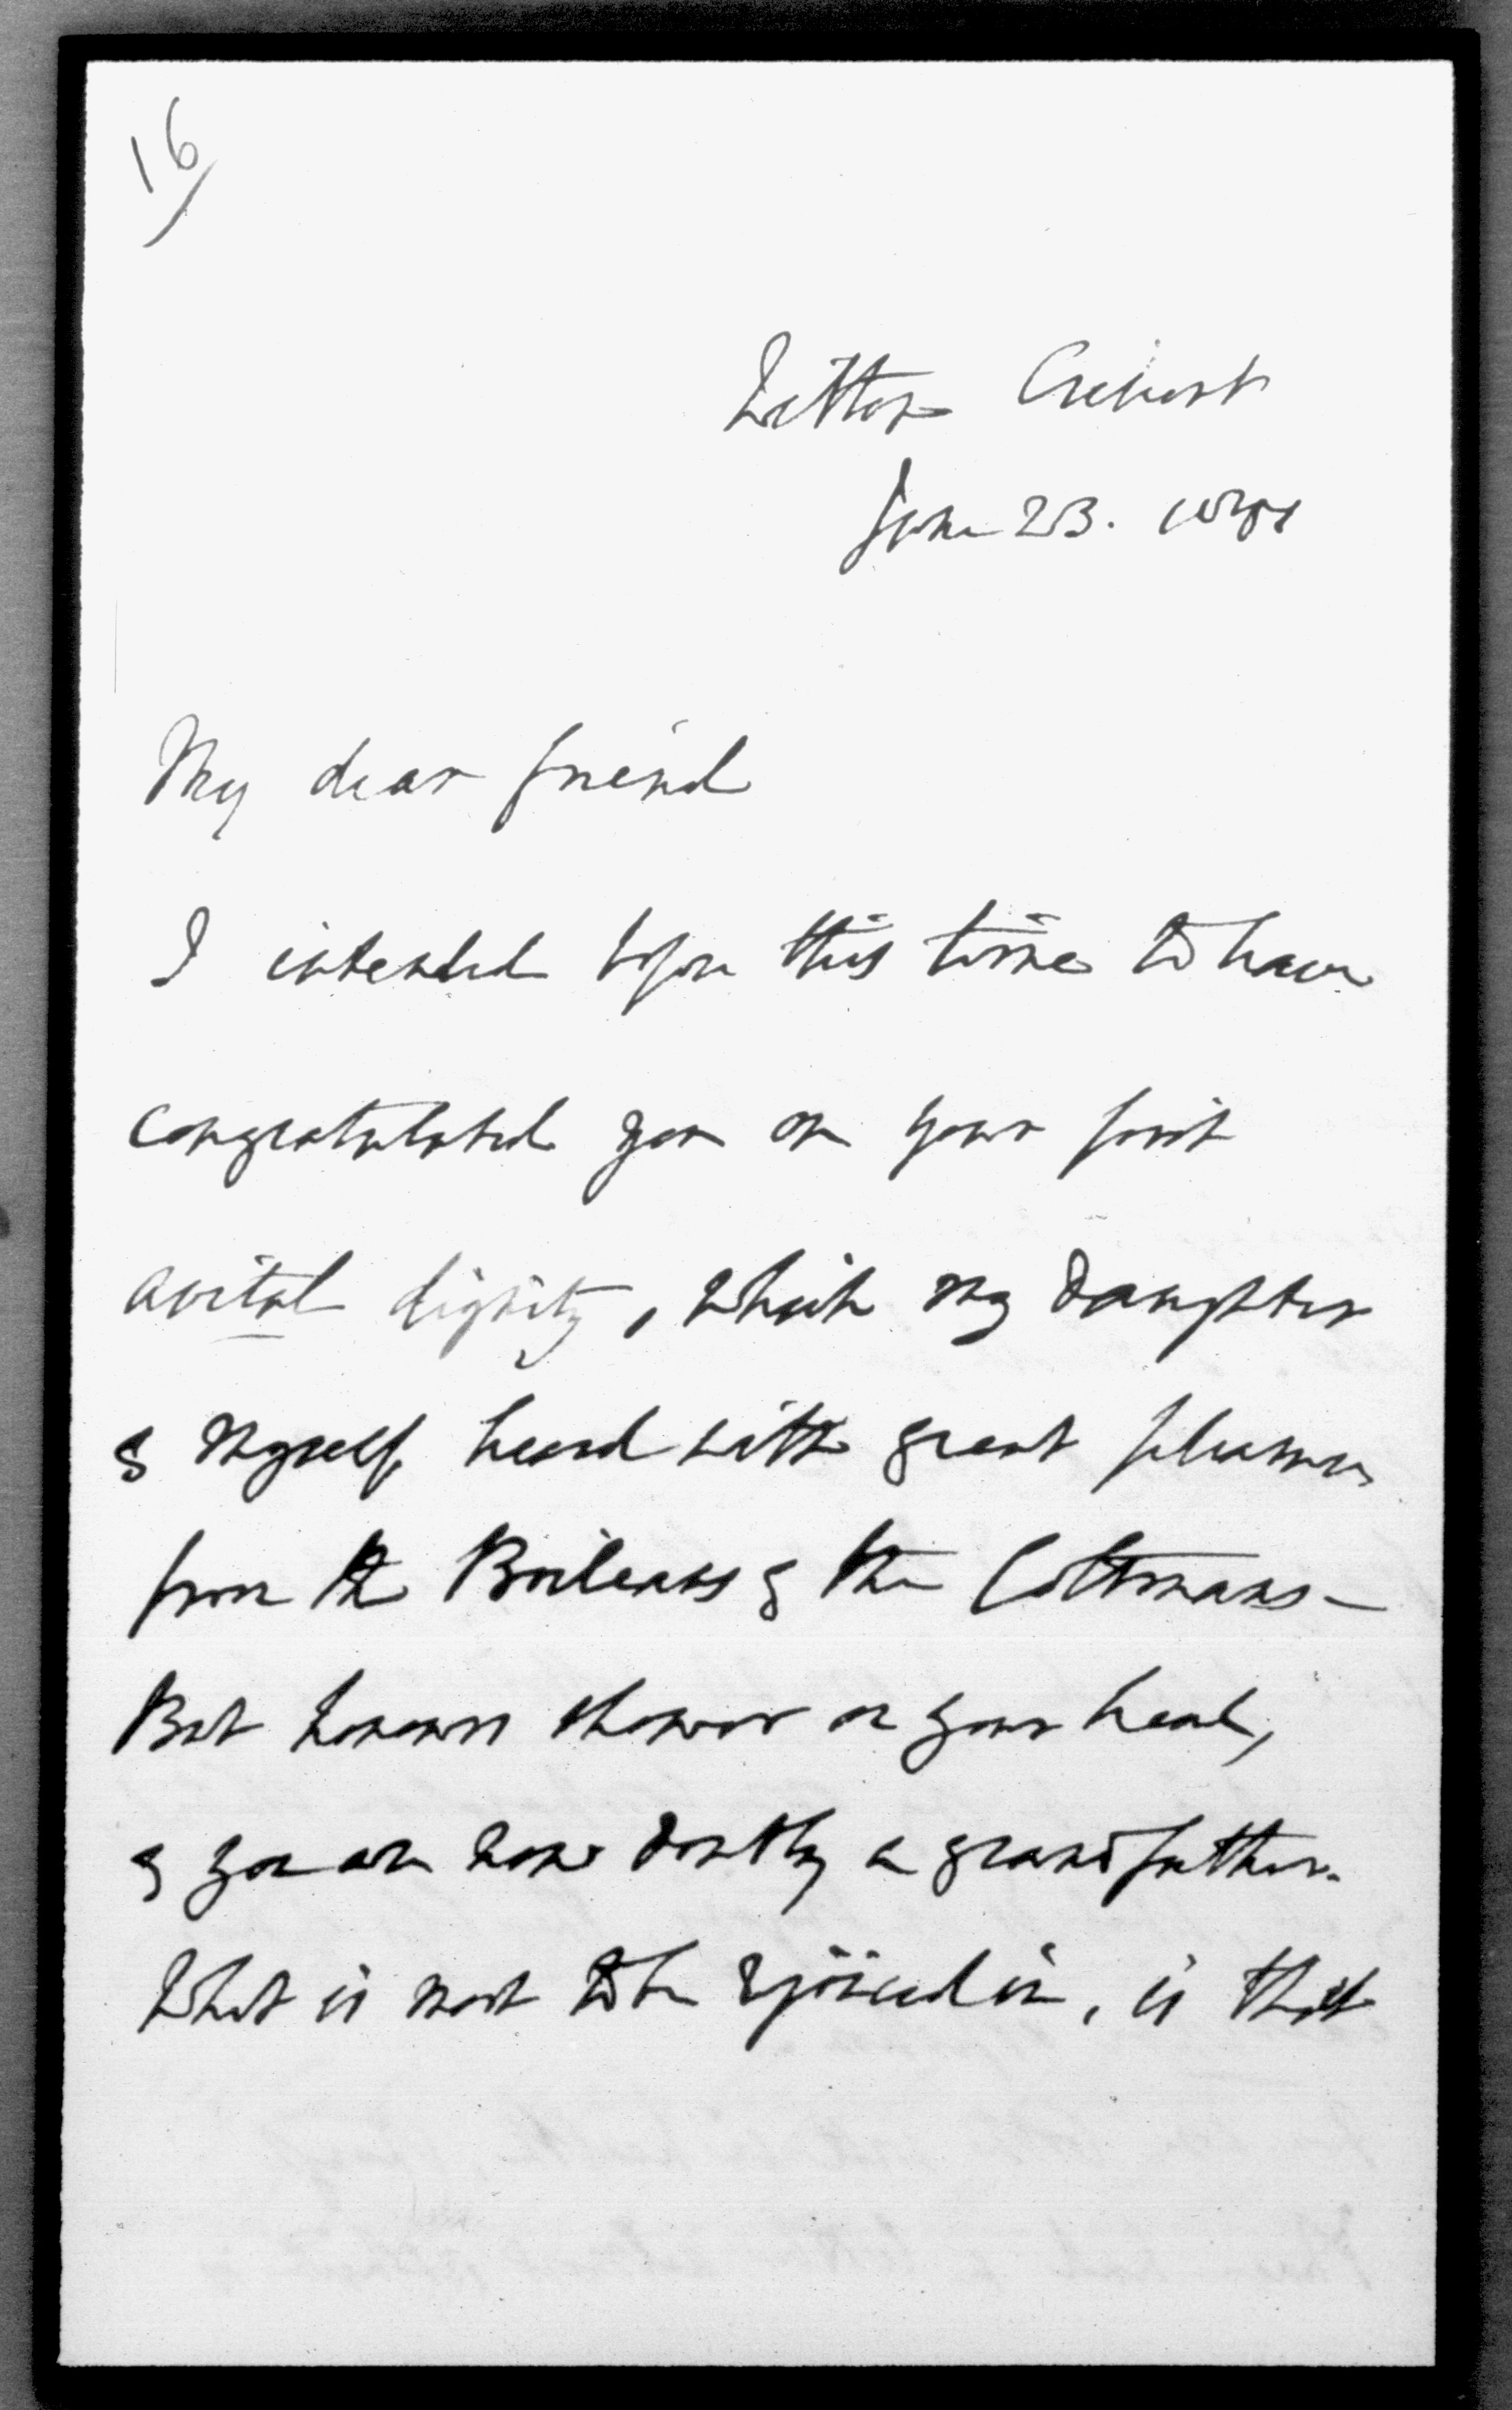 16
Witton Crescent
June 23.
My dear friend
I intended before this time to have
congratulated you on your first
avital dignity, which my daughter
& myself heard with great pleasure
from the Boileaus & the Coltmans –
But honours shower on your head,
& you are now doubly a grandfather.
What is most to be rejoiced in, is that